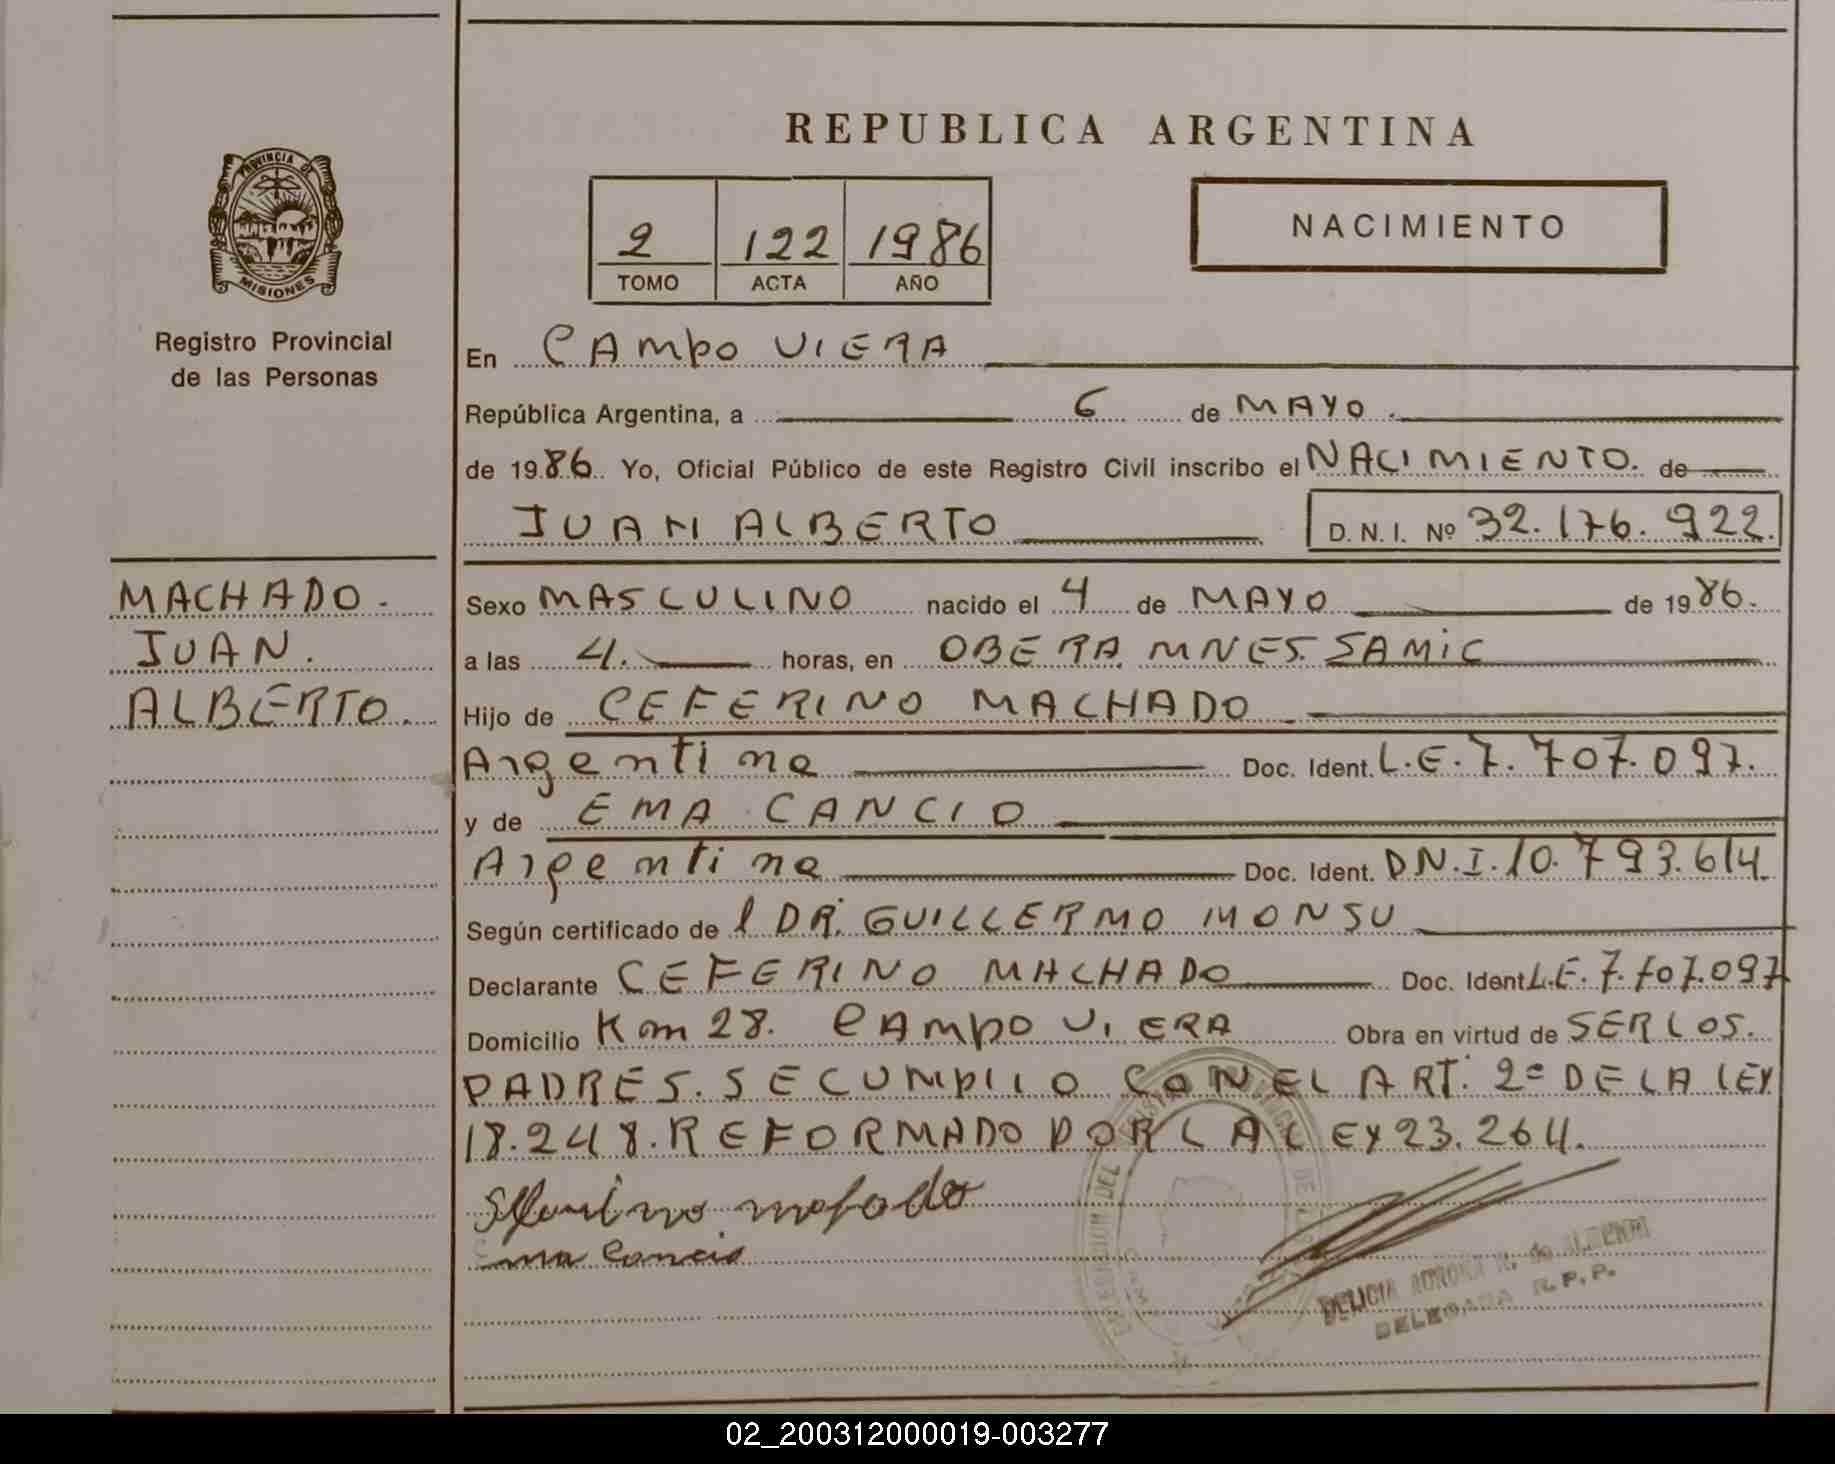 REPUBLICA ARGENTINA
PROVINCIA DE
MISIONES
Registro Provincial
de las Personas
2 122 1986
TOMO ACTA AÑO
NACIMIENTO
En CAMPO VIERA
República Argentina, a 6 de MAYO.
de 1986. Yo, Oficial Público de este Registro Civil inscribo el NACIMIENTO. de
JUAN ALBERTO D. N. I. Nº 32.176.922.
MACHADO.
JUAN.
ALBERTO.
Sexo MASCULINO nacido el 4 de MAYO de 1986.
a las 4. horas, en OBERA MNES. SAMiC
Hijo de CEFERINO MACHADO
Argentina Doc. Ident. L.E.7.707.097.
y de EMA CANCIO
Argentina Doc. Ident. D.N.I.10.793.614.
Según certificado de l DR. GUILLERMO MONSU
Declarante CEFERINO MACHADO Doc. Ident L.E.7.707.097
Domicilio Km 28. CAMPO VIERA Obra en virtud de SER LOS.
PADRES. SE CUMPLIO CON EL ART. 2º DE LA LEY
18.248. REFORMADO POR LA LEY 23.264.
Ema Cancio
DELICIA AURORA R. de
DELEGADA R.P.P.
02_200312000019-003277